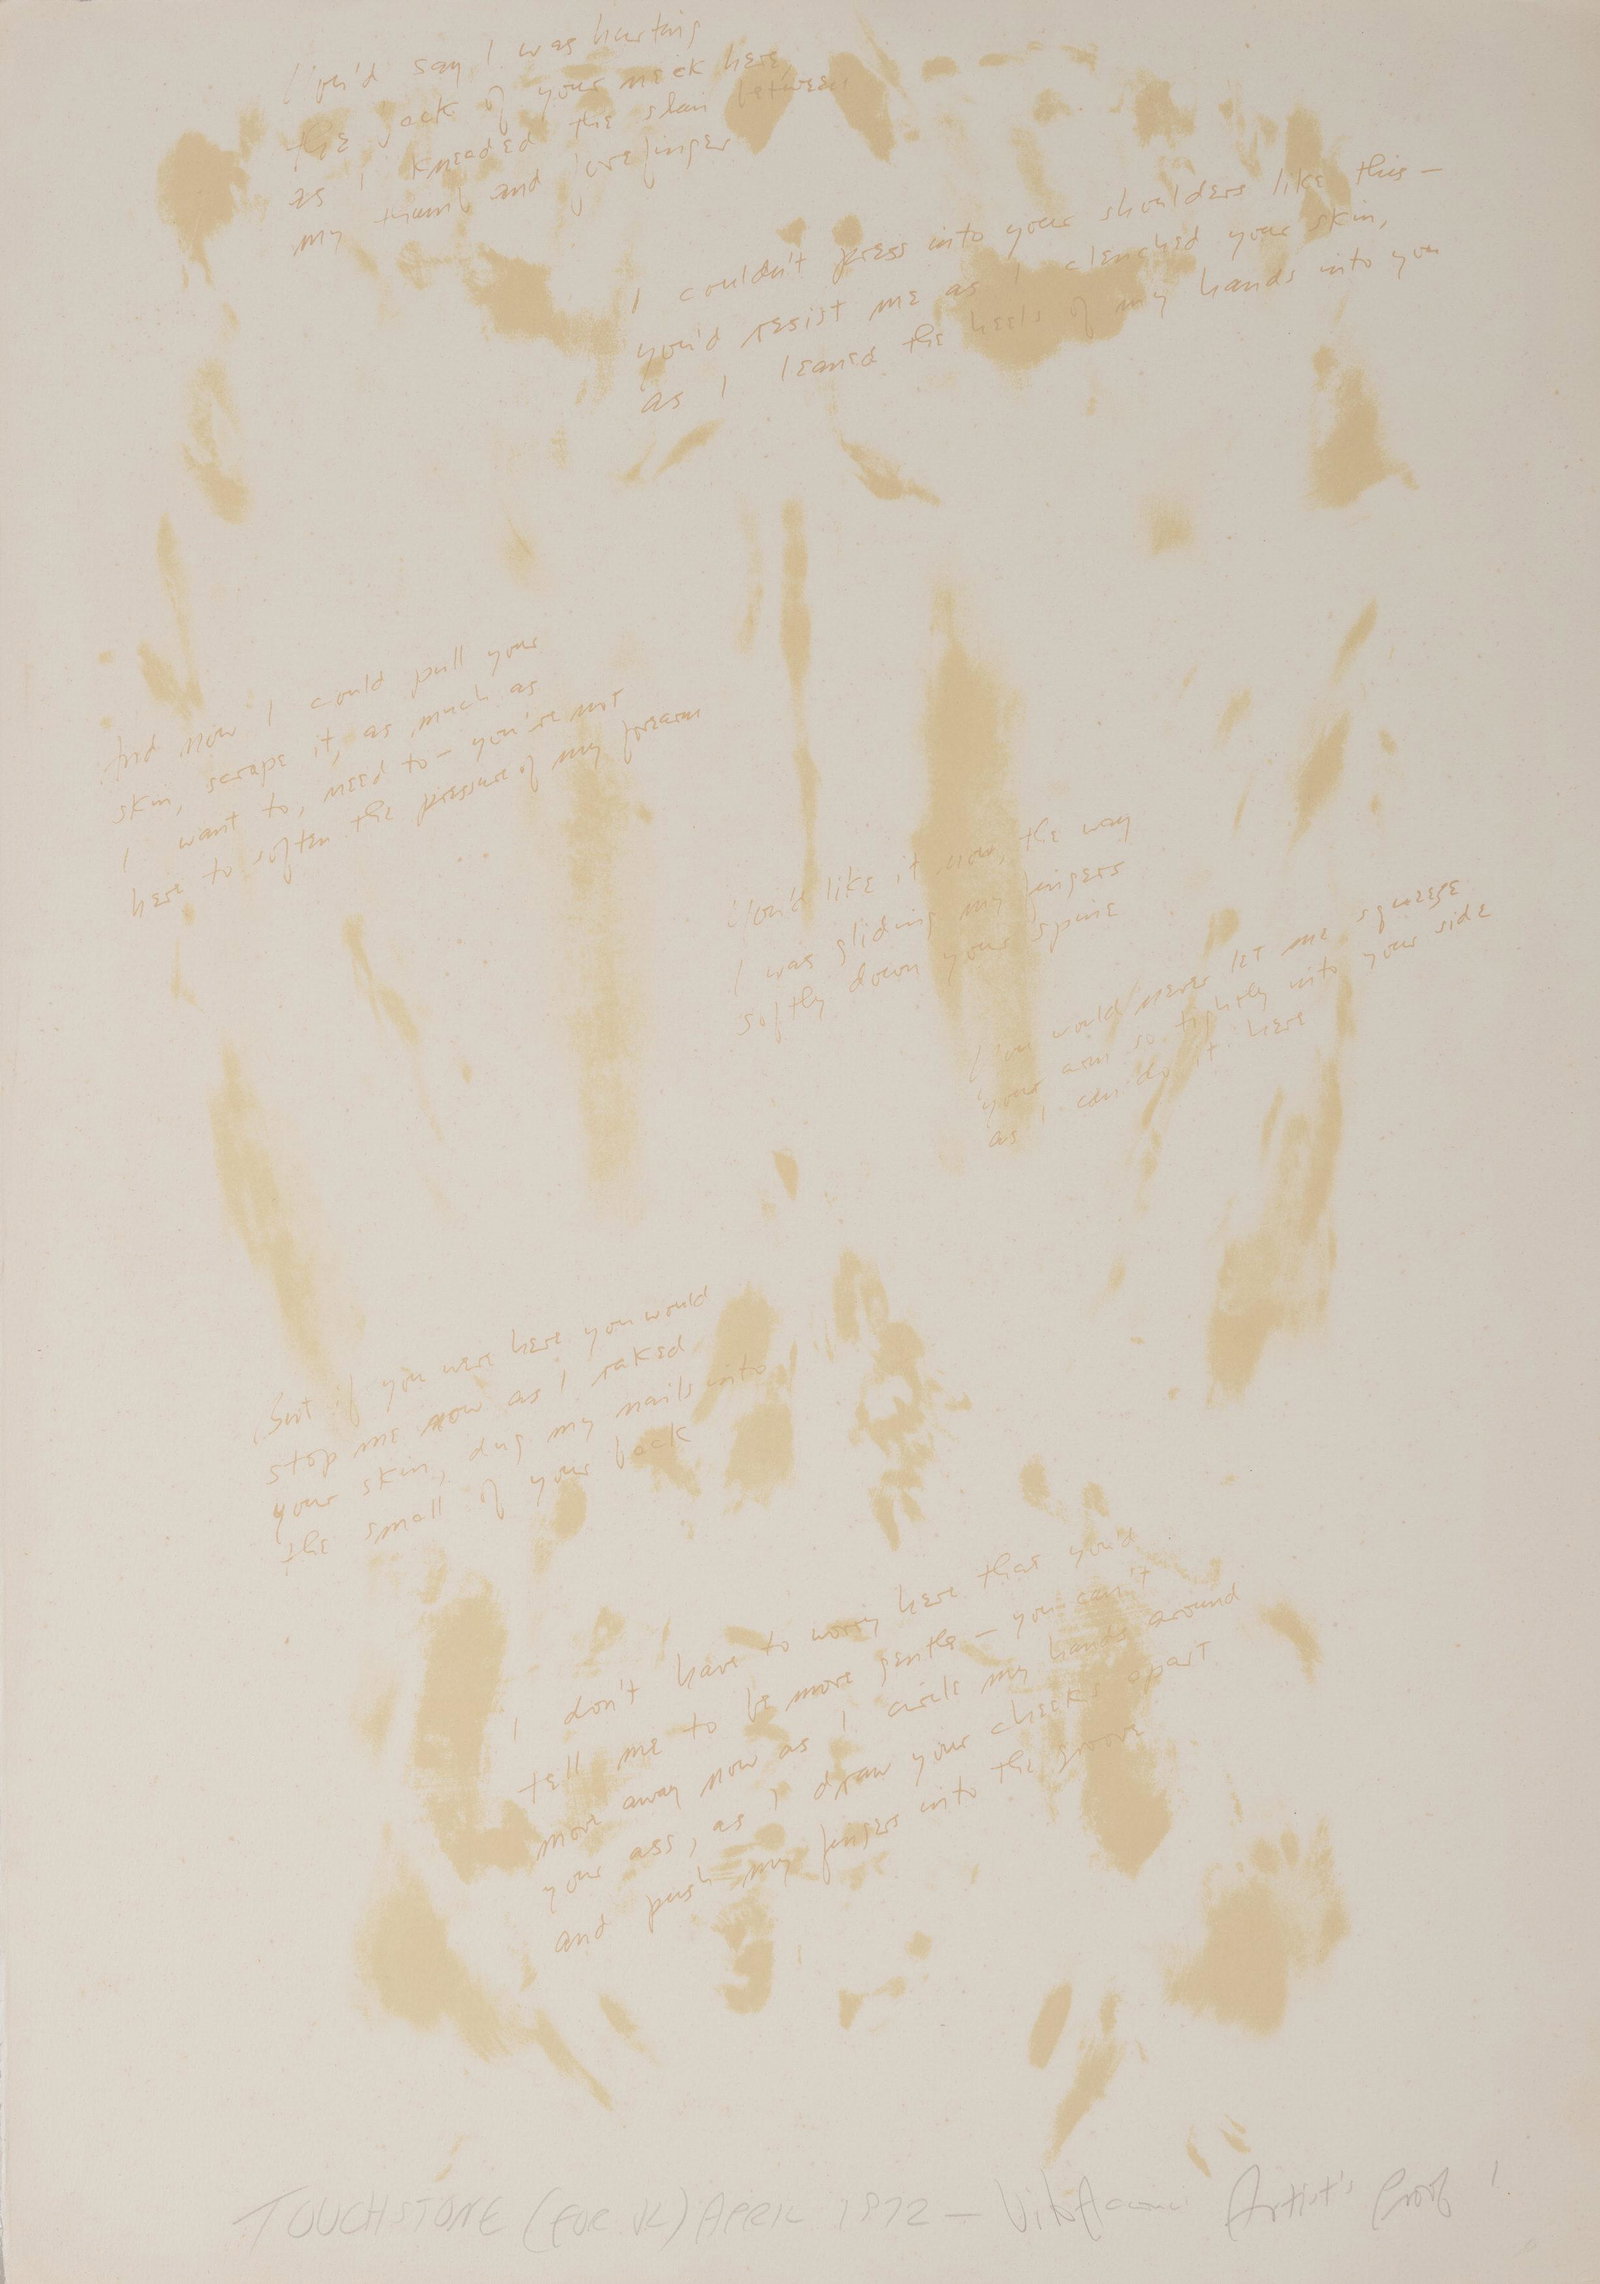 You'd say I was hurting
the back of your neck here,
as I kneaded the skin between
my thumb and forefinger
I couldn't press into your shoulders like this —
you'd resist me as I clenched your skin,
as I leaned the heels of my hands into you
And now I could pull your
skin, scrape it, as much as
I want to, need to — you're not
here to soften the pressure of my forearm
You'd like it now, the way
I was gliding my fingers
softly down your spine
You would never let me squeeze
your arm so tightly into your side
as I can do it here
But if you were here you would
stop me now as I raked
your skin, dug my nails into
the small of your back
I don't have to worry here that you'd
tell me to be more gentle — you can't
move away now as I circle my hands around
your ass, as I draw your cheeks apart
and push my fingers into the groove
TOUCHSTONE (FOR VL) APRIL 1972 — Vito Acconci Artist's Proof 1